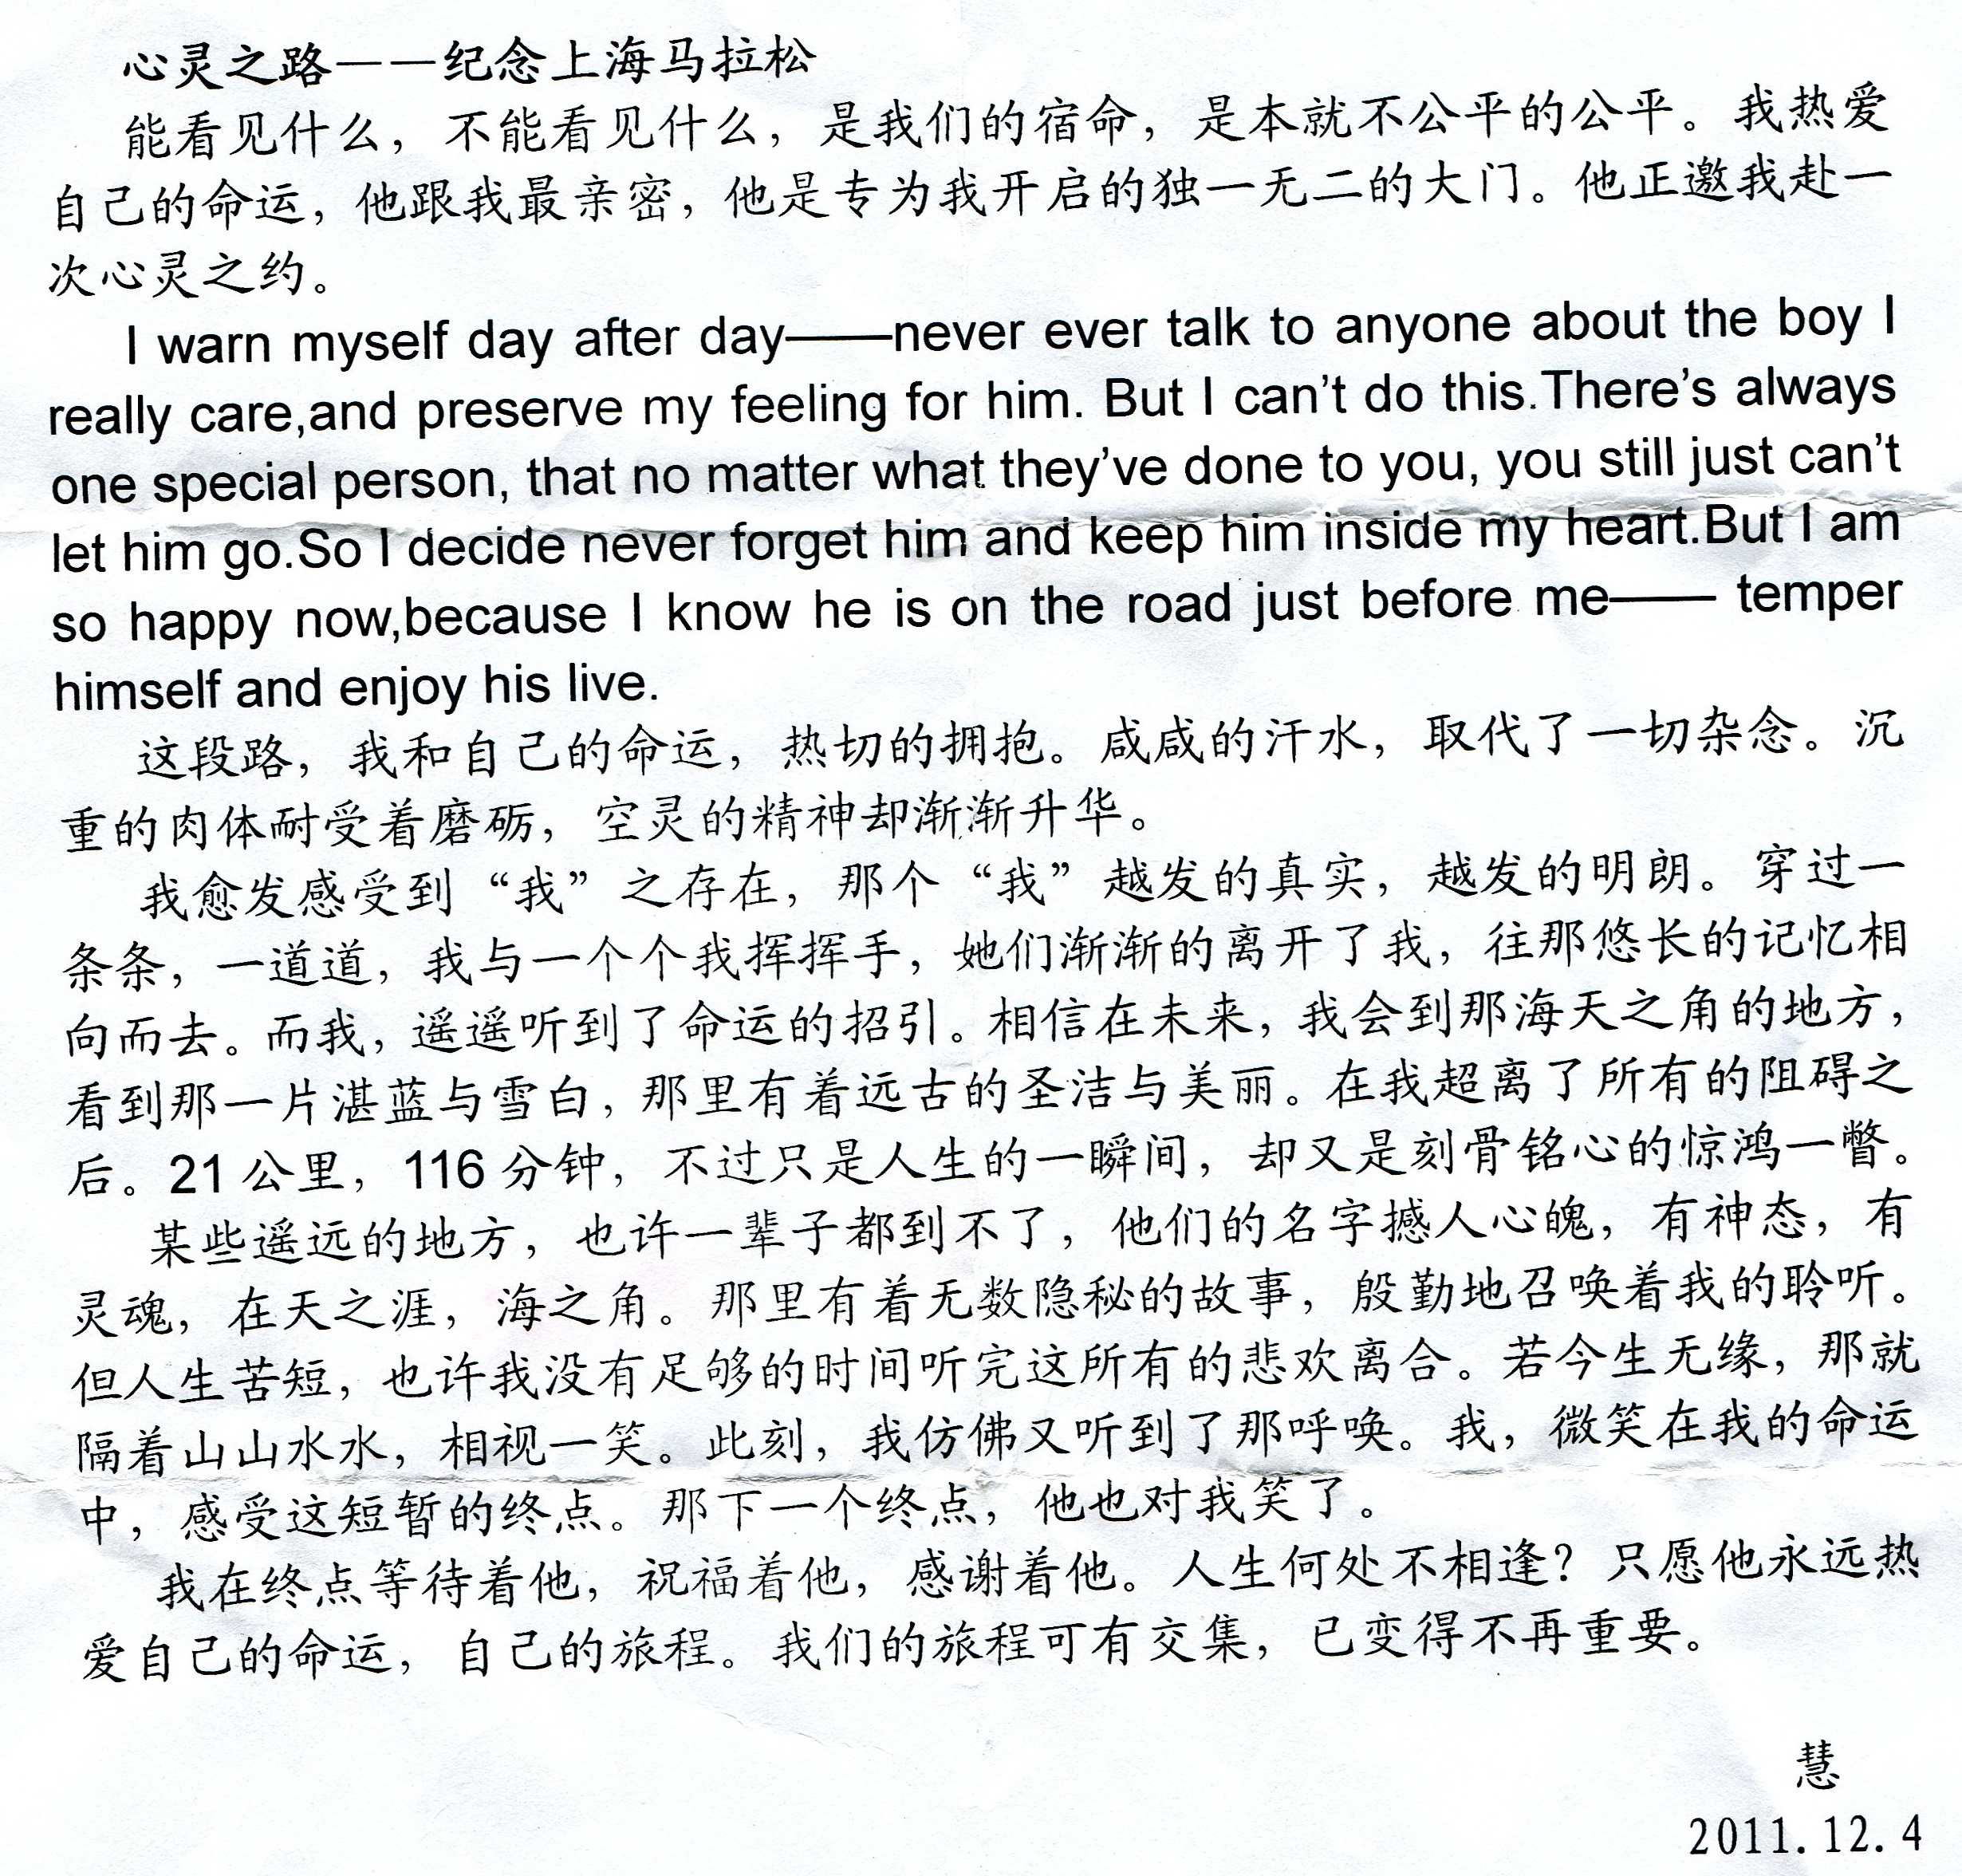 心灵之路——纪念上海马拉松
能看见什么，不能看见什么，是我们的宿命，是本就不公平的公平。我热爱
自己的命运，他跟我最亲密，他是专为我开启的独一无二的大门。他正邀我赴一
次心灵之约。
I warn myself day after day——never ever talk to anyone about the boy I
really care,and preserve my feeling for him. But I can’t do this.There’s always
one special person, that no matter what they’ve done to you, you still just can’t
let him go.So I decide never forget him and keep him inside my heart.But I am
so happy now,because I know he is on the road just before me—— temper
himself and enjoy his live.
这段路，我和自己的命运，热切的拥抱。咸咸的汗水，取代了一切杂念。沉
重的肉体耐受着磨砺，空灵的精神却渐渐升华。
我愈发感受到“我”之存在，那个“我”越发的真实，越发的明朗。穿过一
条条，一道道，我与一个个我挥挥手，她们渐渐的离开了我，往那悠长的记忆相
向而去。而我，遥遥听到了命运的招引。相信在未来，我会到那海天之角的地方，
看到那一片湛蓝与雪白，那里有着远古的圣洁与美丽。在我超离了所有的阻碍之
后。21 公里，116 分钟，不过只是人生的一瞬间，却又是刻骨铭心的惊鸿一瞥。
某些遥远的地方，也许一辈子都到不了，他们的名字撼人心魄，有神态，有
灵魂，在天之涯，海之角。那里有着无数隐秘的故事，殷勤地召唤着我的聆听。
但人生苦短，也许我没有足够的时间听完这所有的悲欢离合。若今生无缘，那就
隔着山山水水，相视一笑。此刻，我仿佛又听到了那呼唤。我，微笑在我的命运
中，感受这短暂的终点。那下一个终点，他也对我笑了。
我在终点等待着他，祝福着他，感谢着他。人生何处不相逢？只愿他永远热
爱自己的命运，自己的旅程。我们的旅程可有交集，已变得不再重要。
慧
2011.12.4